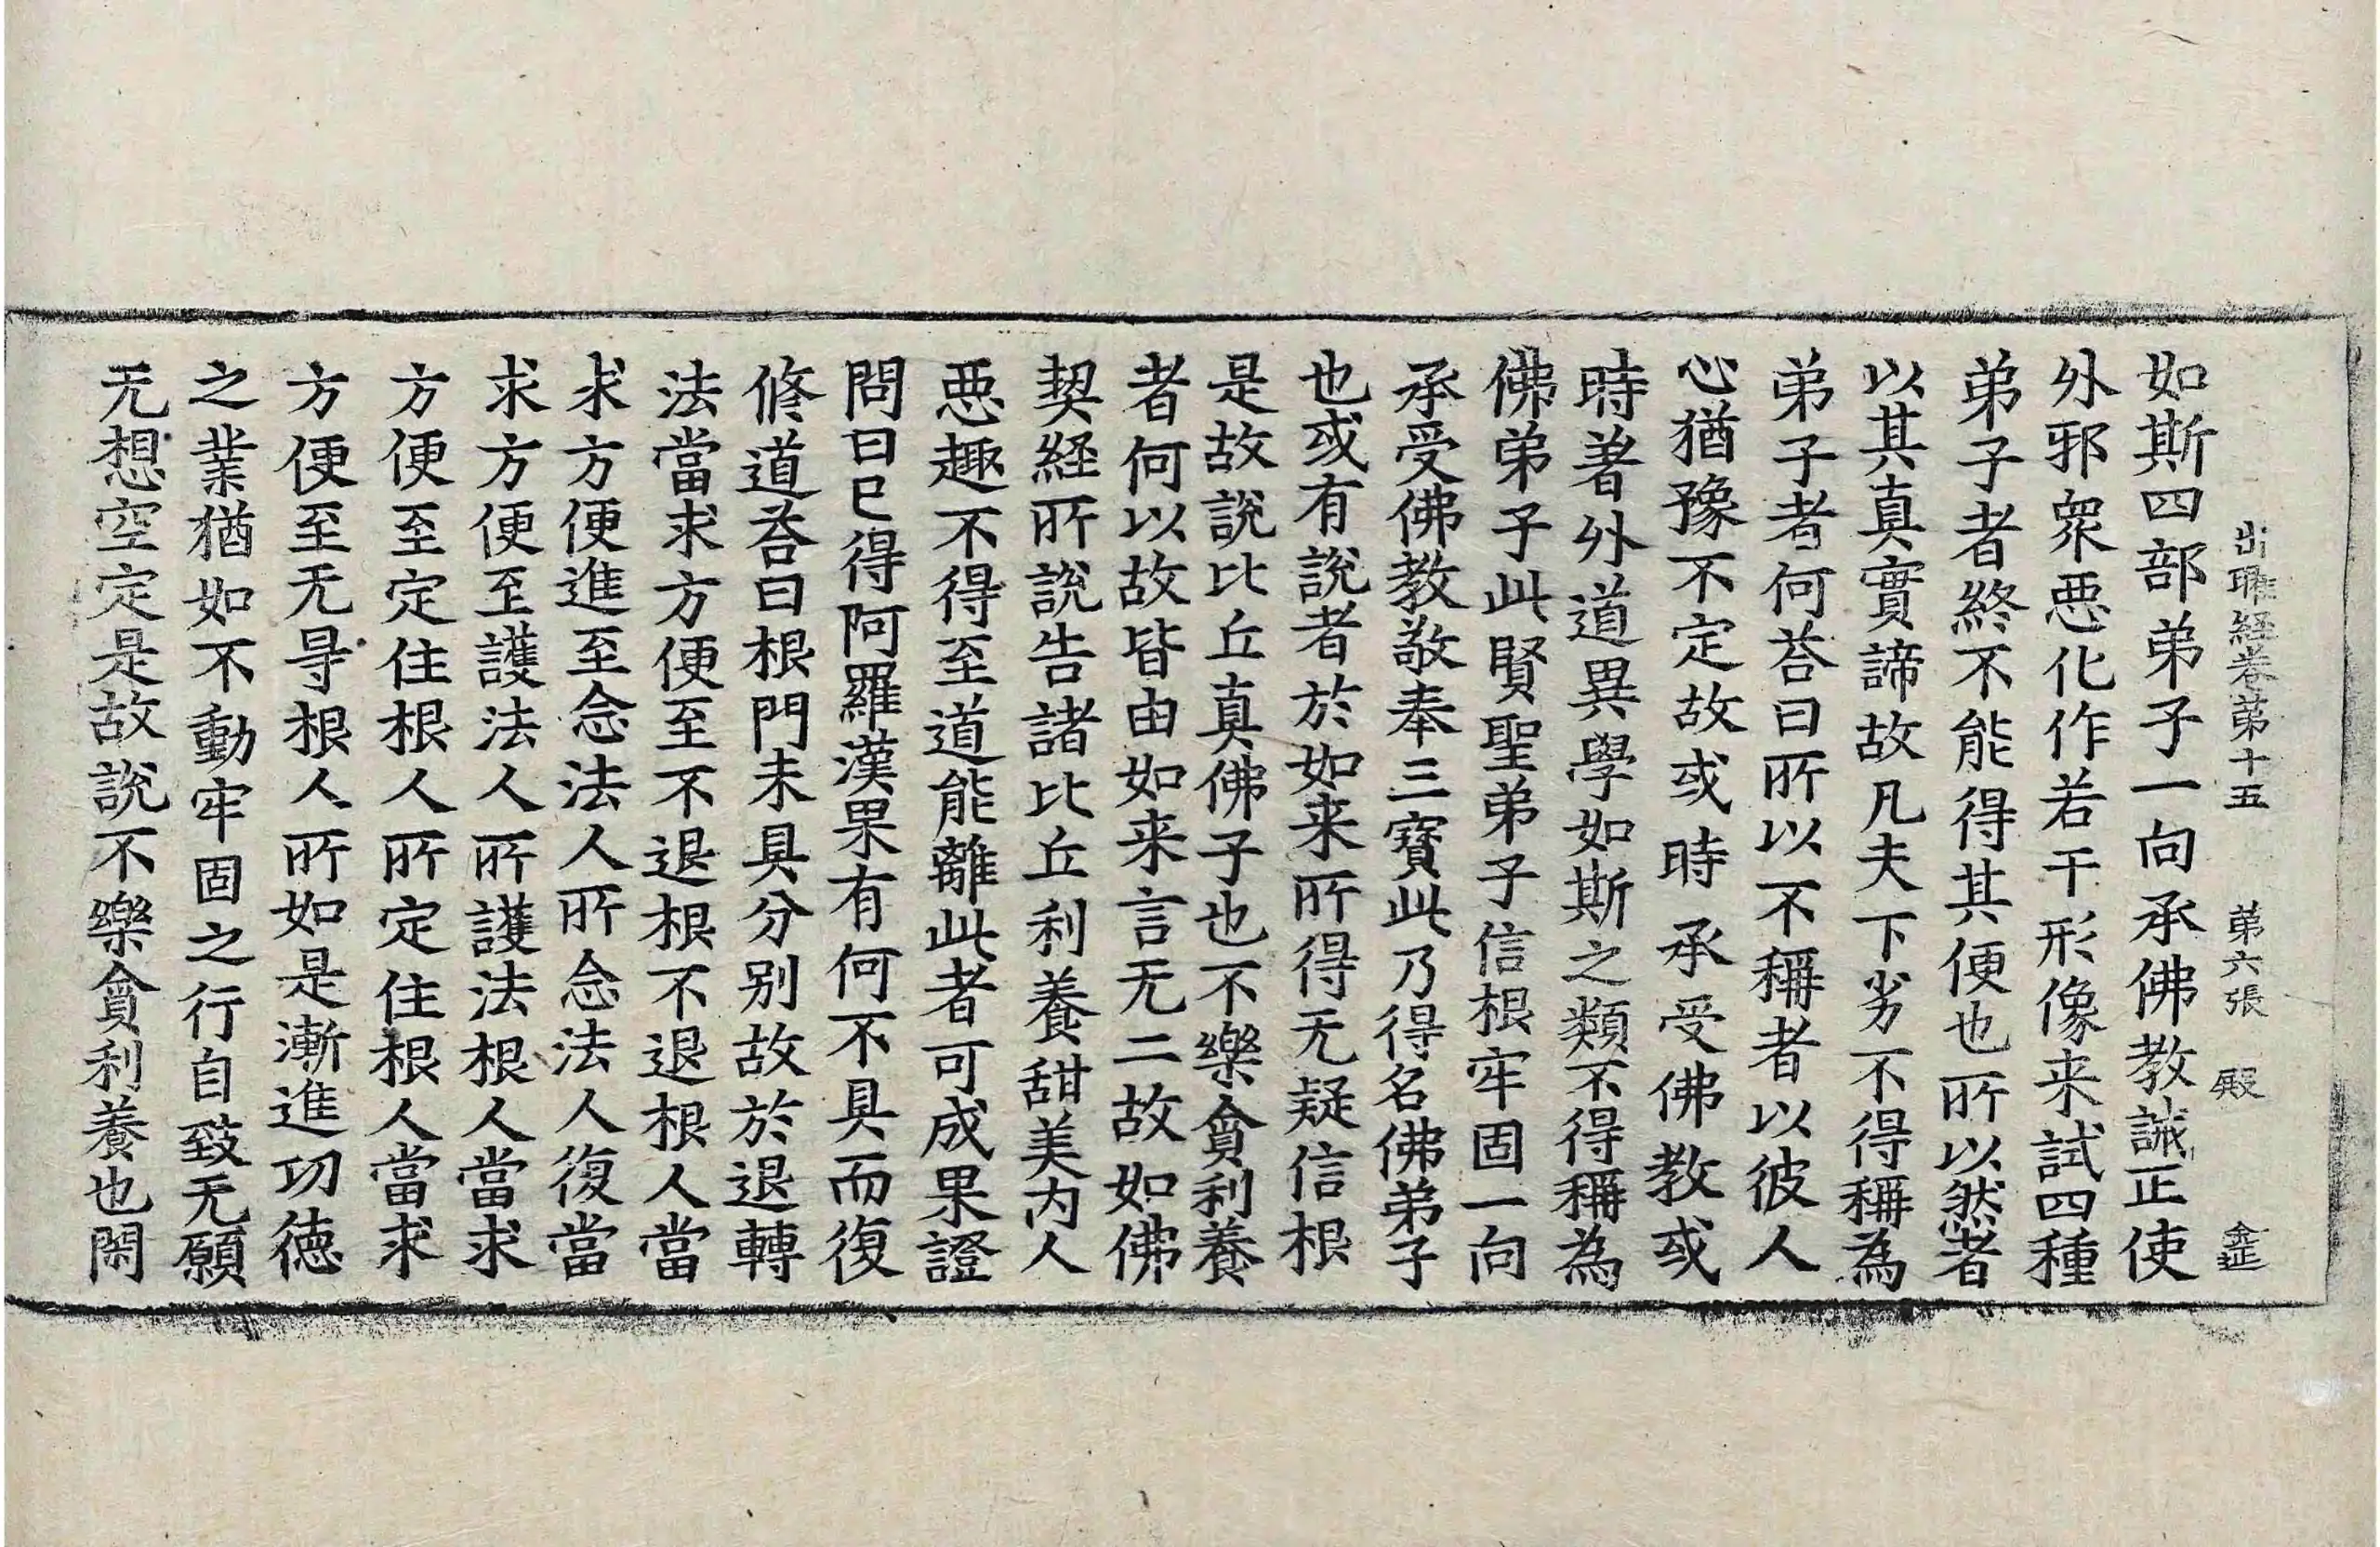 出曜経卷第十五 第六張 殿
如斯四部弟子一向承佛教誡正使
外邪衆惡化作若干形像来試四種
弟子者終不能得其便也所以然者
以其真實諦故凡夫下劣不得稱為
弟子者何荅曰所以不稱者以彼人
心猶豫不定故或時承受佛教或
時著外道異學如斯之類不得稱為
佛弟子此賢聖弟子信根牢固一向
承受佛教敬奉三寶此乃得名佛弟子
也或有說者於如来所得无疑信根
是故說比丘真佛子也不樂貪利養
者何以故皆由如来言无二故如佛
契経所說告諸比丘利養甜美内人
惡趣不得至道能離此者可成果證
問曰已得阿羅漢果有何不具而復
修道荅曰根門未具分别故於退轉
法當求方便至不退根不退根人當
求方便進至念法人所念法人復當
求方便至護法人所護法根人當求
方便至定住根人所定住根人當求
方便至无㝵根人所如是漸進功徳
之業猶如不動牢固之行自致无願
无想空定是故說不樂貪利養也閑